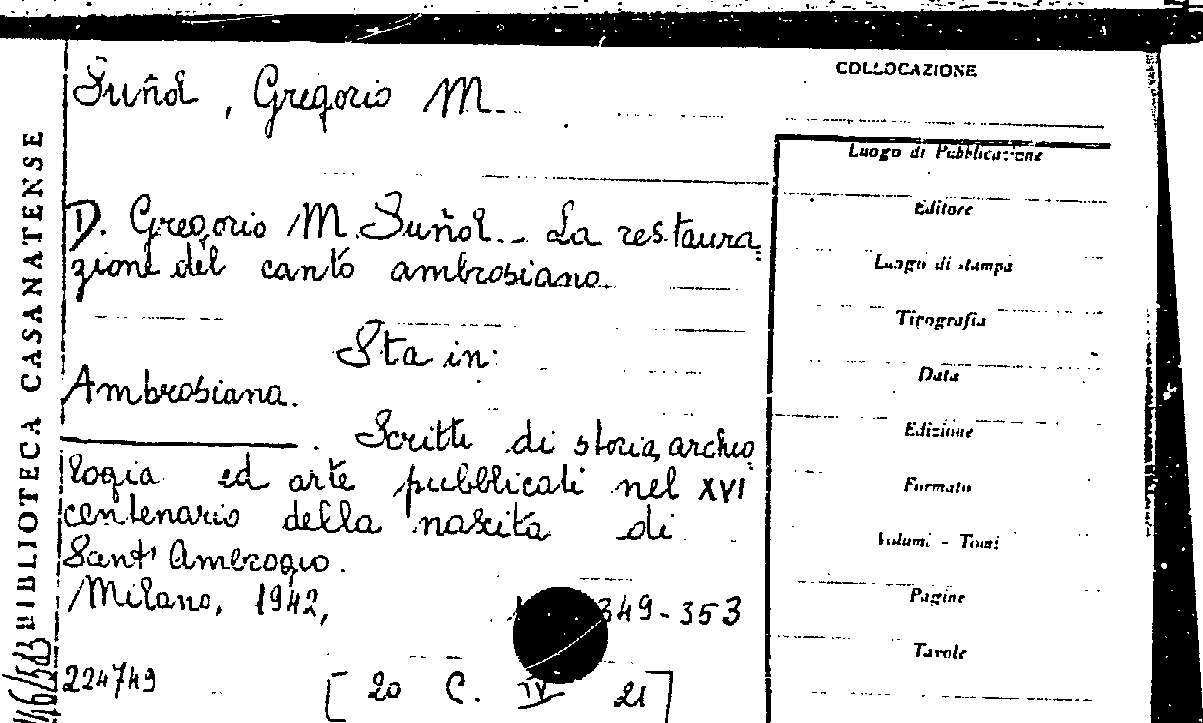 Suñol, Gregorio M.
D. Gregorio M. Suñol. - La restaura
zione del canto ambrosiano.
Sta in:
Ambrosiana.
. Scritti di storia, archeo
logia ed arte pubblicati nel XVI
centenario della nascita di
Sant' Ambrogio.
Milano, 1942, 349-353
224749 [20 C. IV 21]
BIBLIOTECA CASANATENSE
COLLOCAZIONE
Luogo di Pubblicazione
Editore
Luogo di stampa
Tipografia
Data
Edizione
Formato
Volumi - Tomi
Pagine
Tavole